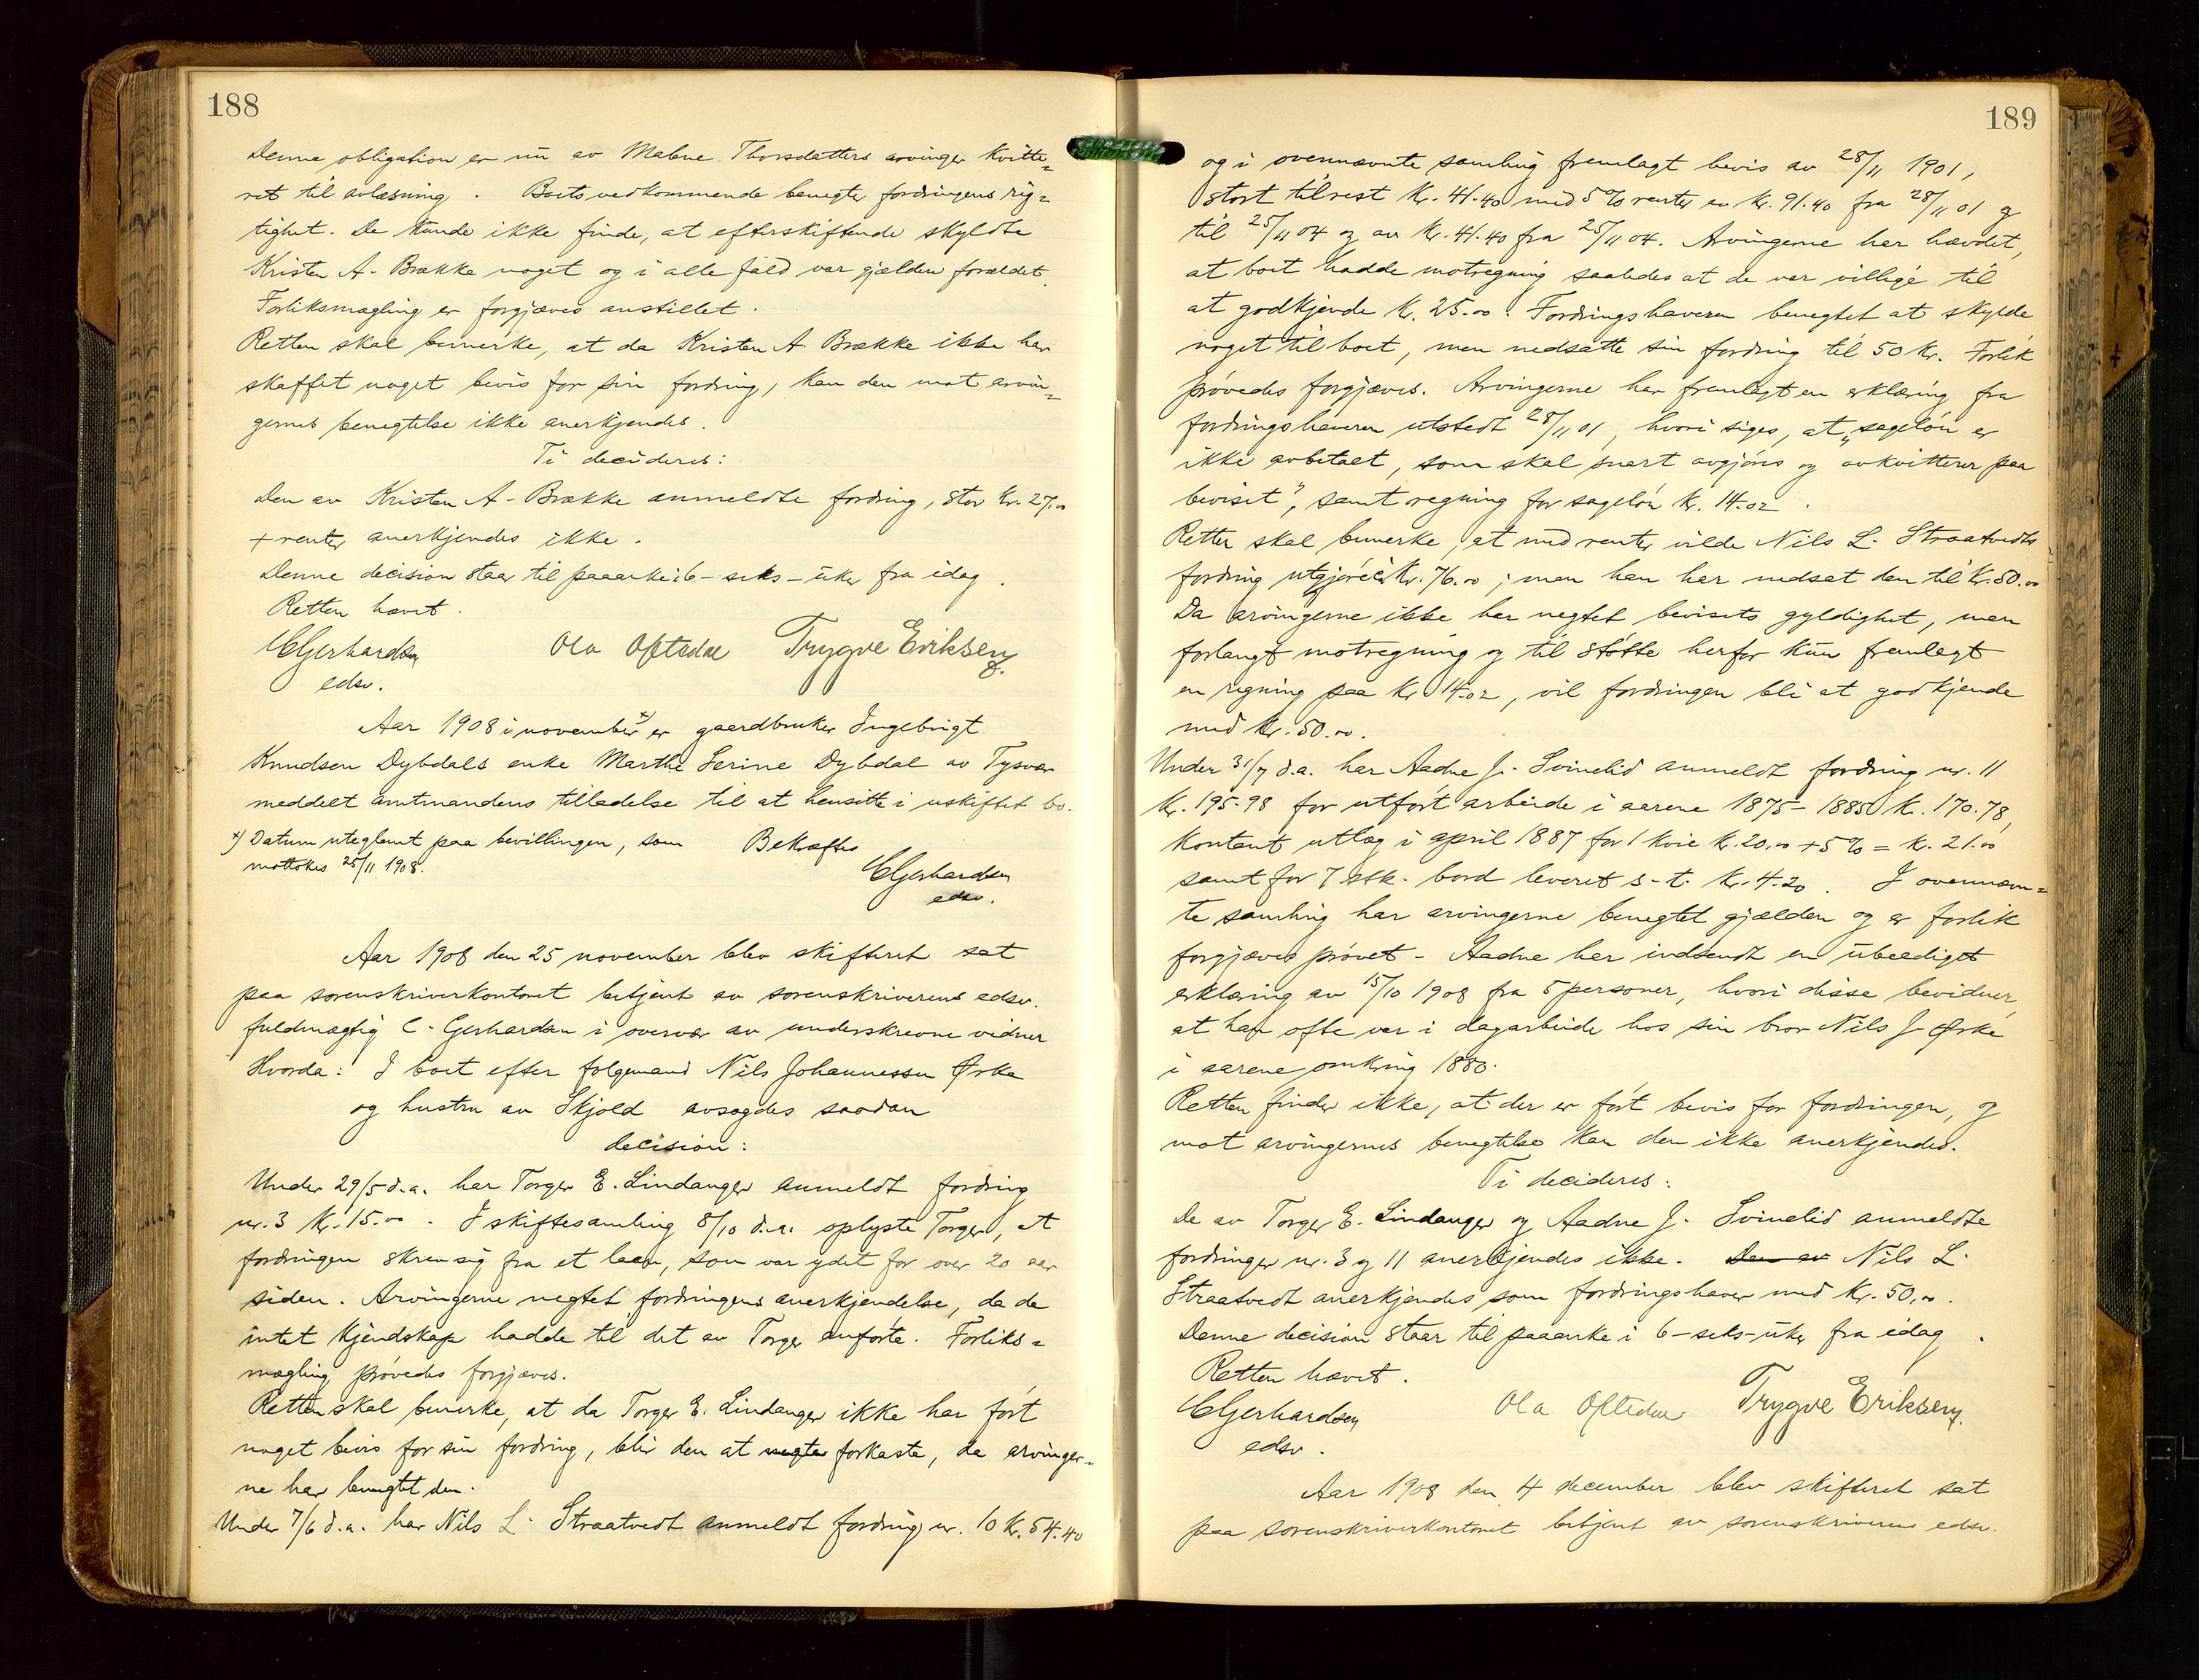 188
Denne obligation er nu av Malene Thorsdatters arvinger kvitte=
ret til avlæsning. Boets vedkommende benegter fordringens rig=
tighet. De kunde ikke finde, at efterskiftende skyldte
Kristen A. Brække noget og i alle fald var gjælden forældet.
Forliksmægling er forgjæves anstillet.
Retten skal bemerke, at da Kristen A. Brække ikke har
skaffet noget bevis for sin fordring, kan den mot arvin=
gernes benegtelse ikke anerkjendes.
Ti decideres:
Den av Kristen A. Brække anmeldte fordring, stor kr. 27.00
+ renter anerkjendes ikke.
Denne decision staar til paaanke i 6 - seks - uker fra idag.
Retten hævet.
CGerhardsen Ola Oftedal Trygve Eriksen
edsv.
Aar 1908 i november x) er gaardbruker Ingebrigt
Knudsen Dybdals enke Marthe Serine Dybdal av Tysvær
meddelt amtmandens tilladelse til at hensitte i uskiftet bo.
x) Datum uteglemt paa bevillingen, som Bekræftes
mottokes 25/11 1908. CGerhardsen
edsv.
Aar 1908 den 25 november blev skifteret sat
paa sorenskriverkontoret betjent av sorenskriverens edsv.
fuldmægtig C. Gerhardsen i overvær av underskrevne vidner
Hvorda: I boet efter følgemand Nils Johannessen Ørke
og hustru av Skjold avsagdes saadan
decision:
Under 29/5 d.a. har Torger E. Lindanger anmeldt fordring
nr. 3 kr. 15.00. I skiftesamling 8/10 d.a. oplyste Torger, at
fordringen skrev sig fra et laan, som var ydet for over 20 aar
siden. Arvingerne negtet fordringens anerkjendelse, da de
intet kjendskap hadde til det av Torger anførte. Forliks=
mægling prøvedes forgjæves.
Retten skal bemerke, at da Torger E. Lindanger ikke har ført
noget bevis for sin fordring, blir den at negte forkaste, da arvinger=
ne har benegtet den.
Under 7/6 d.a. har Nils L. Straatvedt anmeldt fordring nr. 10 kr. 54.40
189
og i ovennævnte samling fremlagt bevis av 28/11 1901,
stort tilrest kr. 41.40 med 5% renter av kr. 91.40 fra 28/11 01 og
til 25/11 04 og av kr. 41.40 fra 25/11 04. Arvingerne har hævdet,
at boet hadde motregning saaledes at de var villige til
at godkjende kr. 25.00. Fordringshaveren benegtet at skylde
noget til boet, men nedsatte sin fordring til 50 kr. Forlik
prøvedes forgjæves. Arvingerne har fremlagt en erklæring fra
fordringshaveren utstedt 28/11 01, hvori siges, at "sageløn er
ikke avbetalt, som skal snart avgjøres og avkvitterer paa
beviset", samt regning for sageløn kr. 14.02.
Retten skal bemerke, at med renter vilde Nils L. Straatvedts
fordring utgjøre kr. 76.00; men han har nedsat den til kr. 50.00
Da arvingerne ikke har negtet bevisets gyldighet, men
forlangt motregning og til støtte herfor kun fremlagt
en regning paa kr. 14.02, vil fordringen bli at godkjende
med kr. 50.00.
Under 31/7 d.a. har Aadne J. Svinelid anmeldt fordring nr. 11
kr. 195.98 for utført arbeide i aarene 1875-1885 kr. 170.78,
kontant utlæg i april 1887 for 1 kvie kr. 20.00 + 5% = kr. 21.00
samt for 7 stk. bord leveret s. t. kr. 4.20. I ovennævn=
te samling har arvingerne benegtet gjælden og er forlik
forgjæves prøvet. Aadne har indsendt en ubeediget
erklæring av 15/10 1908 fra 5 personer, hvori disse bevidner,
at han ofte var i dagarbeide hos sin bror Nils J. Ørke
i aarene omkring 1880.
Retten finder ikke, at der er ført bevis for fordringen, og
mot arvingernes benegtelse kan den ikke anerkjendes.
Ti decideres:
De av Torger E. Lindanger og Aadne J. Svinelid anmeldte
fordringer nr. 3 og 11 anerkjendes ikke. Den av Nils L.
Straatvedt anerkjendes som fordringshaver med kr. 50.00.
Denne decision staar til paaanke i 6 - seks - uker fra idag.
Retten hævet.
CGerhardsen Ola Oftedal Trygve Eriksen.
edsv.
Aar 1908 den 4 december blev skifteret sat
paa sorenskriverkontoret betjent av sorenskriverens edsv.